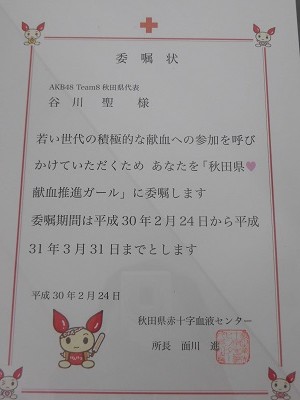 委嘱状
AKB48 Team8 秋田県代表
谷川聖様
若い世代の積極的な献血への参加を呼び
かけていただくため あなたを「秋田県♥
献血推進ガール」に委嘱します
委嘱期間は平成30年2月24日から平成
31年3月31日までとします
平成30年2月24日
秋田県赤十字血液センター
所長 面川進